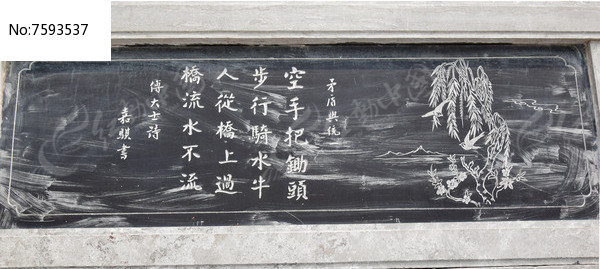 No:7593537
矛盾與統
空手把鋤頭
步行騎水牛
人從橋上過
橋流水不流
傅大士詩
嘉騏書